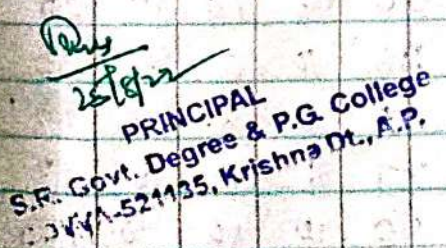 25/8/22
PRINCIPAL
S.R. Govt. Degree & P.G. College
-521135, Krishna Dt., A.P.